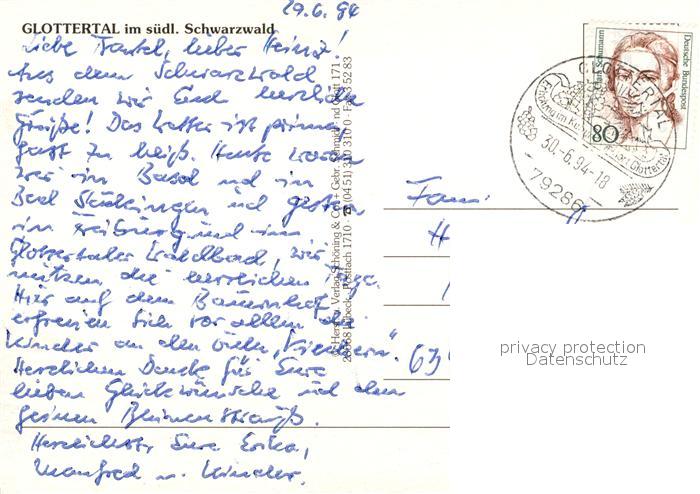 29.6.94
GLOTTERTAL im südl. Schwarzwald
Liebe Bärbel, lieber Heinz!
Aus dem Schwarzwald
senden wir Euch herzliche
Grüße! Das Wetter ist prima
fast zu heiß. Heute waren
wir in Basel und in
Bad Säckingen und gestern
in Freiburg und im
Glottertaler Waldbad, wir
nützen die herrlichen Tage.
Hier auf dem Bauernhof
erfreuen sich vor allem die
Kinder an den vielen „Viechern".
Herzlichen Dank für Eure
lieben Glückwünsche und den
feinen Blumenstrauß.
Herzlichst Eure Erika,
Manfred u. Kinder.
Hersteller Verlag Schöning & Co + Gebr. Schmidt
Lübeck · Postfach 1710 · ☎ (04 51) 3 10 31 0
Fam.
H
63
Clara Schumann
Deutsche Bundespost
80
GLOTTERTAL
30.-6.94-18
79286
privacy protection
Datenschutz